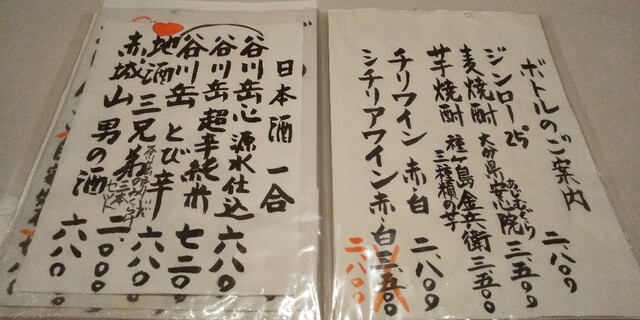 ボトルのご案内
ジンロー25 二、八〇〇
麦焼酎 大分県安心院 三、五〇〇
あじむぐら
芋焼酎 種ヶ島金兵衛 三、五〇〇
三種類の芋
チリワイン 赤・白 二、八〇〇
シチリアワイン 赤・白 三、五〇〇
二、八〇〇
日本酒 一合
谷川岳心 源水仕込 六八〇
谷川岳 超辛純米 六八〇
谷川岳 とび辛 七二〇
地酒 三兄弟 六八〇
赤城山 男の酒 二、〇〇〇